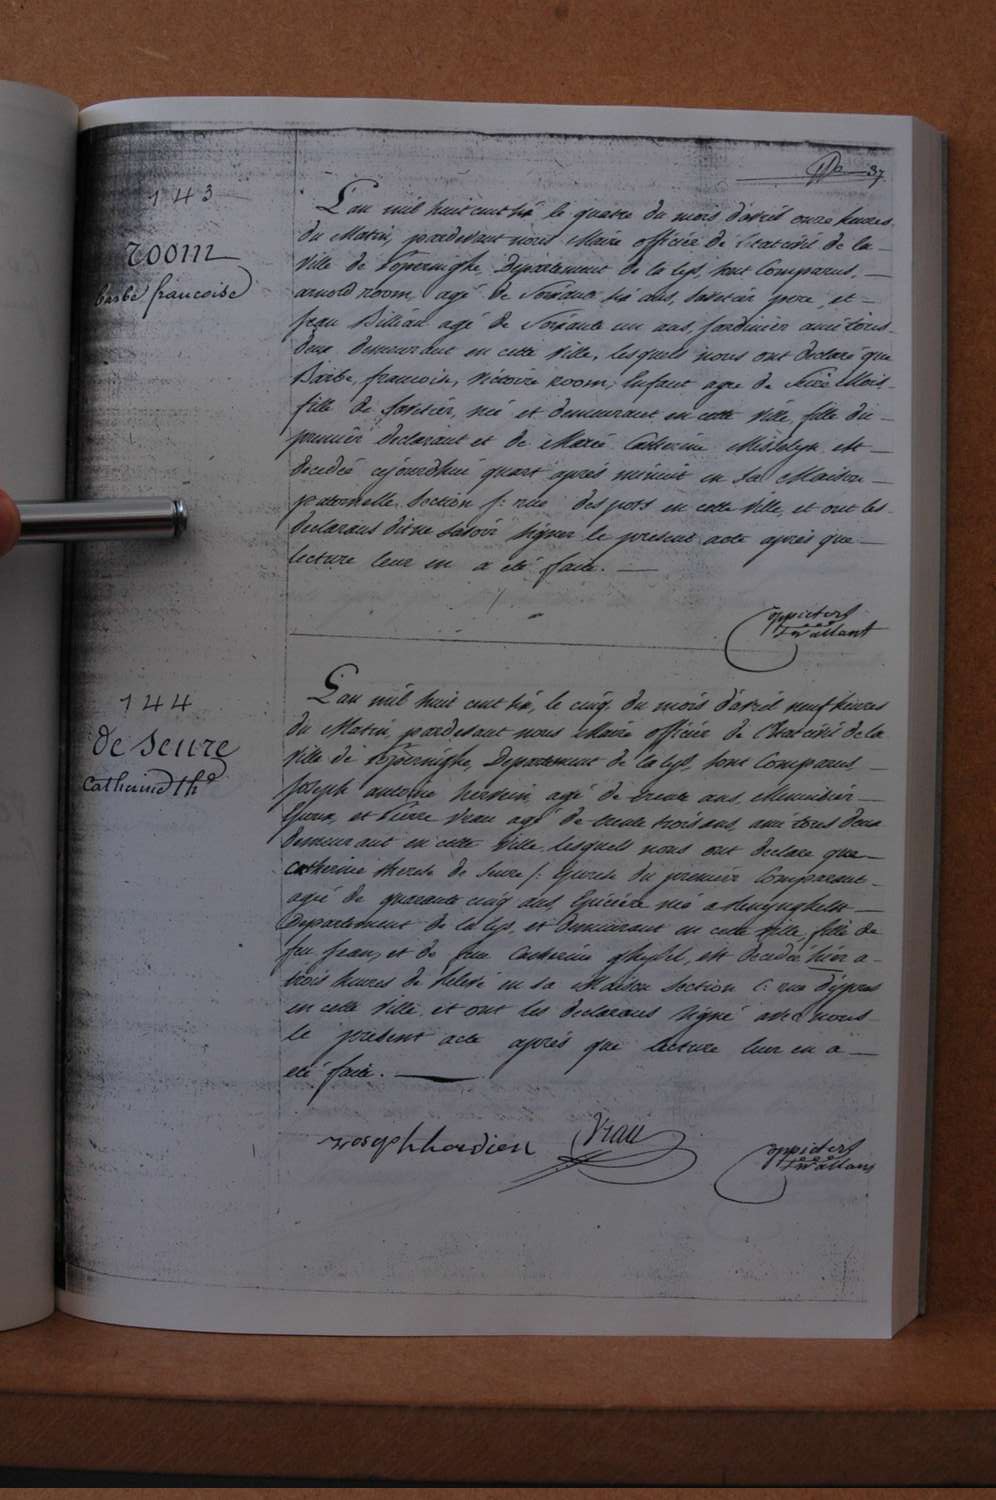 37
143
room
barbe francoise
L'an mil huit cent six le quatre du mois d'avril onze heures
du Matin, pardevant nous Maire officier de l'etat civil de la
Ville de Poperinghe, Departement de la Lys, sont Comparus,
arnold room, agé de Soixante six ans, pere, et
jean Billiau agé de Soixante un ans, Jardinier ami tous
deux demeurant en cette Ville, lesquels nous ont declaré que
Barbe, francoise, Victoire room, Enfant agee de Seize Mois
fille de né et demeurant en cette Ville, fille du
premier declarant et de Marie Catherine est
decedée cejourdhui quart aprés minuit en sa Maison
paternelle, Section f: rue des pots en cette Ville, et ont les
declarans dit ne savoir signer le present acte aprés que
lecture leur en a été faite.
144
de seure
Catherine th
L'an mil huit cent six, le cinq du mois d'avril neuf heures
du Matin, pardevant nous Maire officier de l'Etat civil de la
Ville de Poperinghe, Departement de la Lys, sont Comparus,
Joseph antoine agé de trente ans, Menuisier
Epoux, et Pierre Vrau agé de trente trois ans, ami tous deux
demeurant en cette Ville lesquels nous ont declare que
catherine therese de Seure Epouse du premier Comparant
agée de quarante cinq ans Epiciere née a
Departement de la Lys, et demeurant en cette Ville, fille de
feu jean, et de feue Catherine ghysel, est decedée hier a
trois heures de relevé en sa Maison Section C: rue d'ypres
en cette Ville, et ont les declarans signé avec nous
le present acte aprés que lecture leur en a
été faite.
Vrau